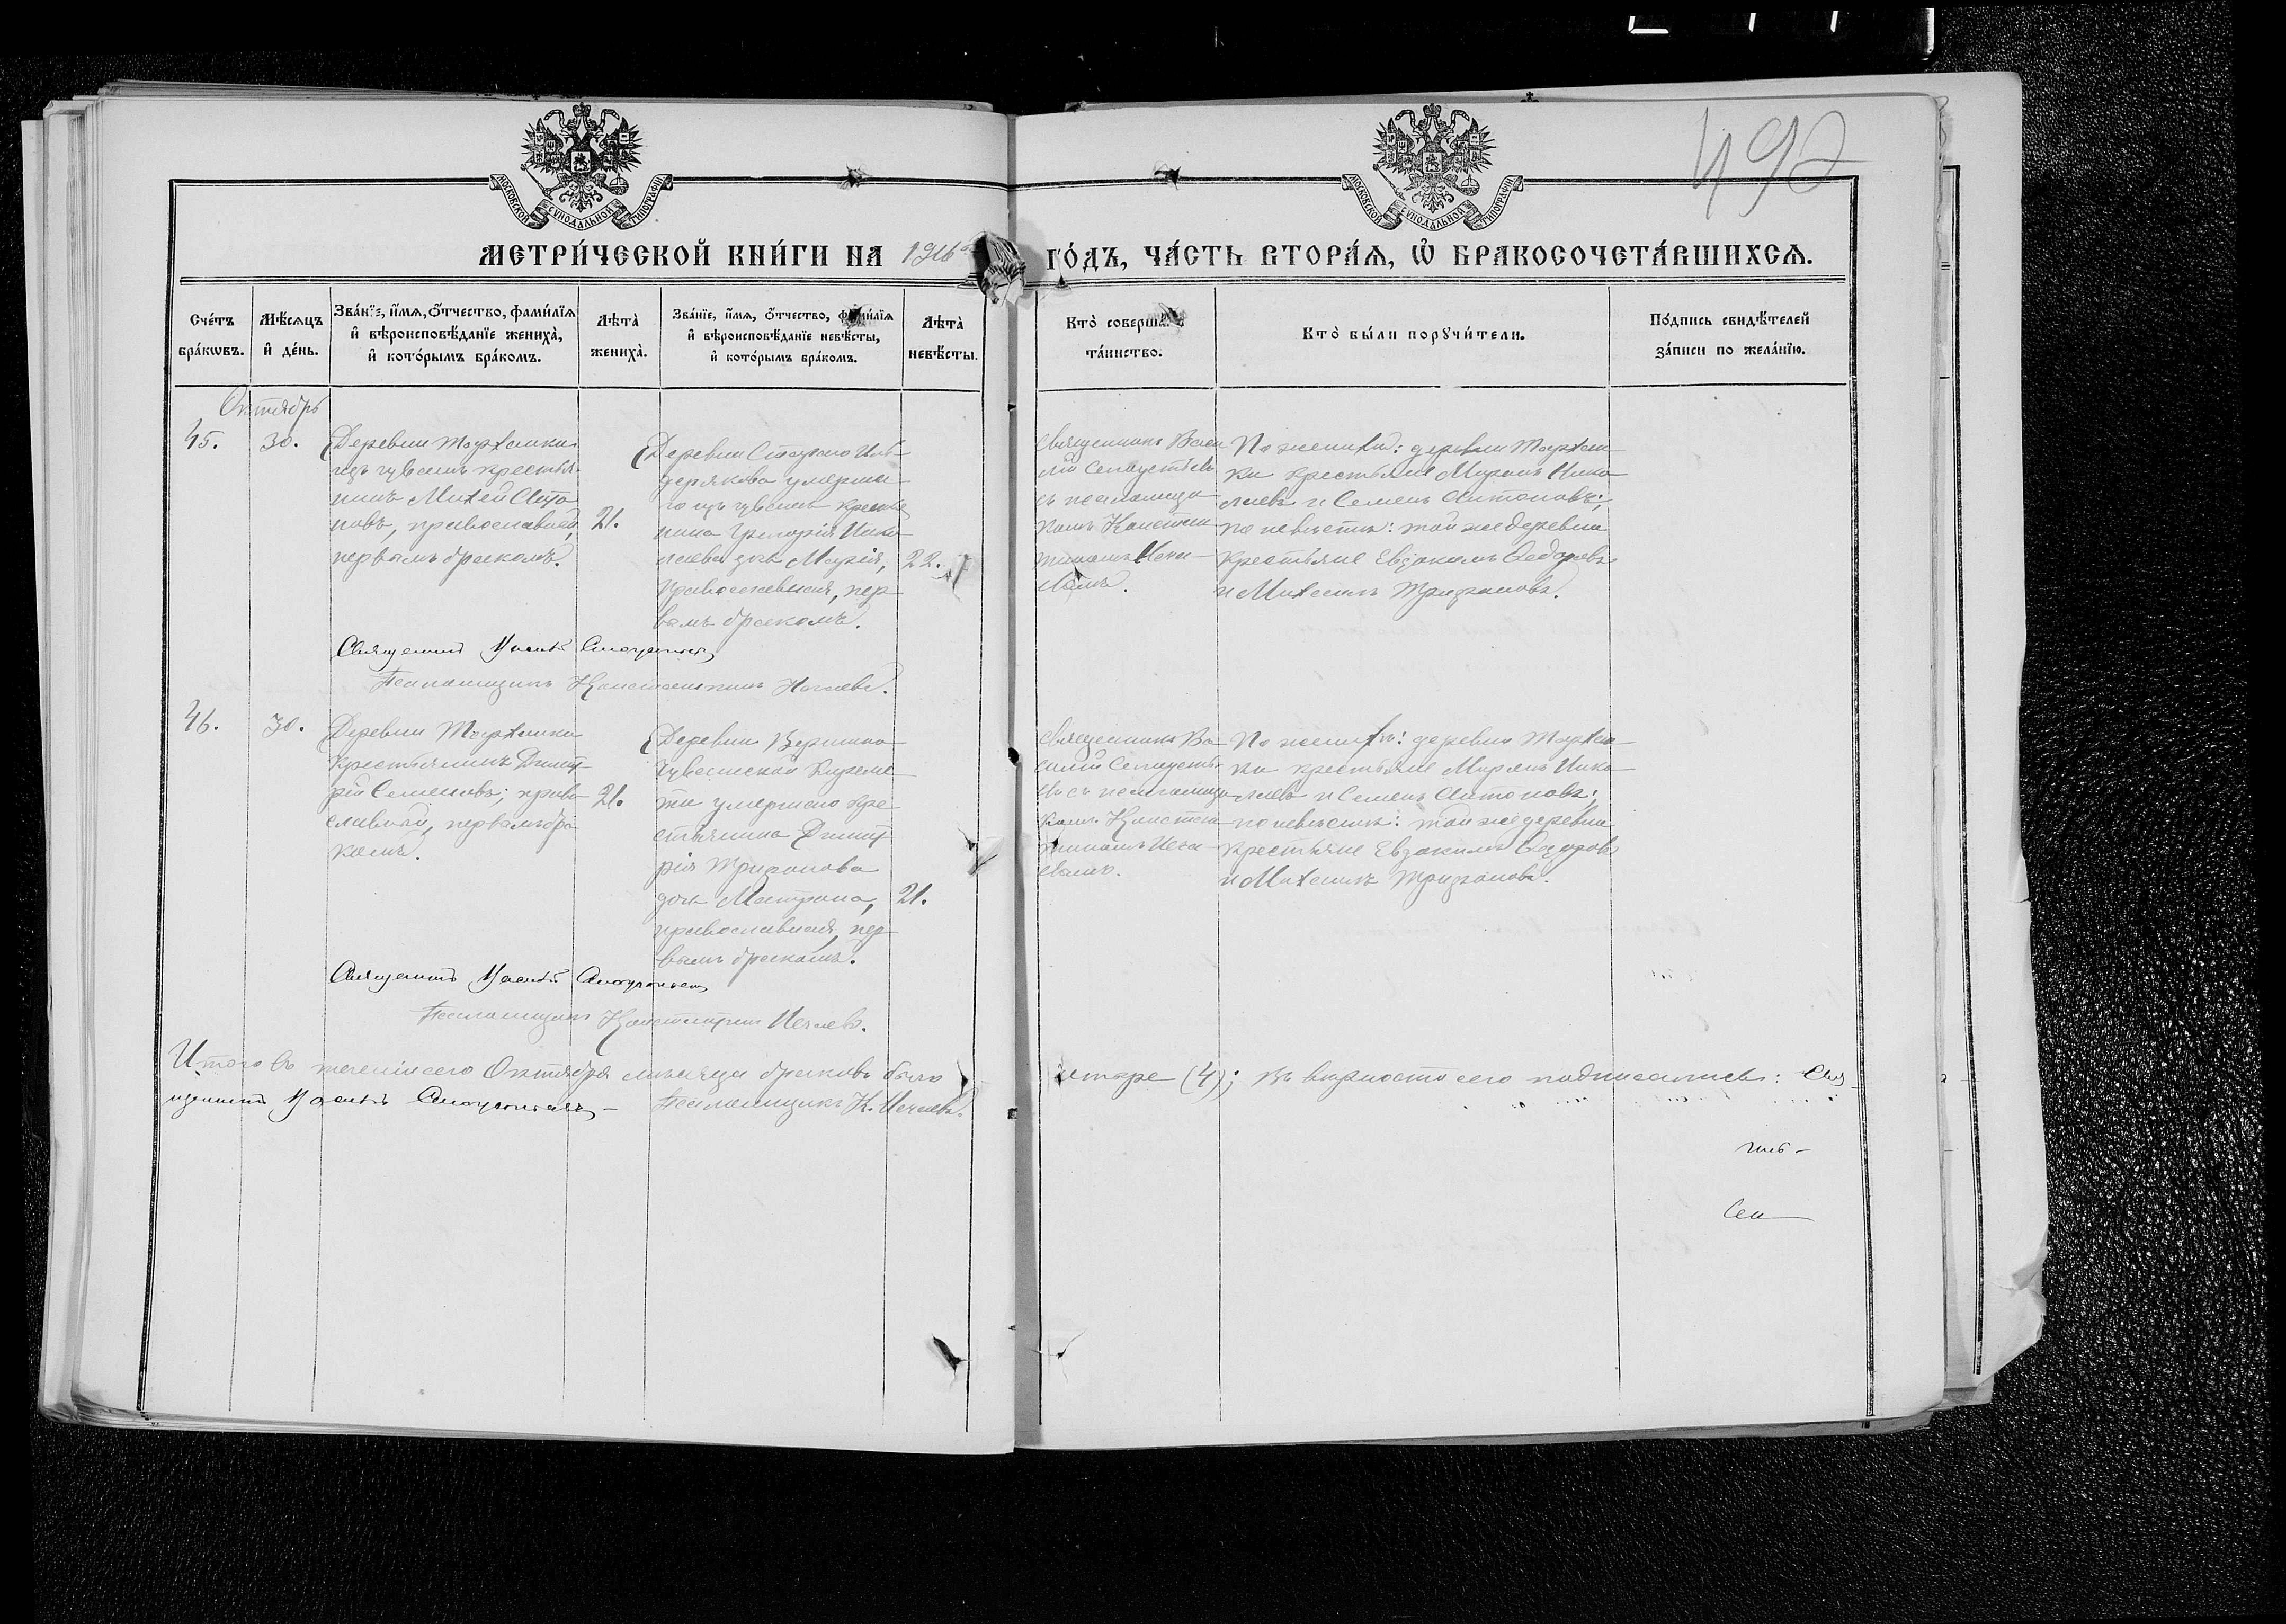 492
МОСКОВСКОЙ СѴНОДАЛЬНОЙ ТИПОГРАФІИ
МОСКОВСКОЙ СѴНОДАЛЬНОЙ ТИПОГРАФІИ
МЕТРИ́ЧЕСКОЙ КНИ́ГИ НА 1916 ГО́ДЪ, ЧА́СТЬ ВТОРА́Ѧ, Ѽ БРАКОСОЧЕТА́ВШИХСѦ.
Сче́тъ бра́кѡвъ.
Мѣ́сѧцъ и҆ де́нь.
Зва́нїе, и҆́мѧ, ѻ҆́тчество, фами́лїѧ
и҆ вѣроисповѣ́данїе жениха̀,
и҆ кото́рымъ бра́комъ.
Лѣ́та̀ жениха̀.
Зва́нїе, и҆́мѧ, ѻ҆́тчество, фами́лїѧ
и҆ вѣроисповѣ́данїе невѣ́сты,
и҆ кото́рымъ бра́комъ.
Лѣ́та̀ невѣ́сты.
Кто̀ соверша́лъ
та́инство.
Кто̀ бы́ли порꙋчи́тели.
По́дпись свидѣ́телей
за́писи по жела́нїю.
Октябрь
45.
30.
Деревни
изъ чувашъ крестья-
нинъ Михей
православный,
первымъ бракомъ.
21.
Деревни Стараго Иль-
дерякова умерша-
го изъ чувашъ крестья
нина Григорія Нико-
лаева дочь Марія,
православная, пер-
вымъ бракомъ.
22.
Священникъ Васи
лій
съ псаломщи
комъ Констан
тиномъ Неча-
евымъ.
По женихѣ: деревни
крестьяне Миронъ Нико
лаевъ и Семенъ Антоновъ;
по невѣстѣ: той же деревни
крестьяне Евдокимъ Ѳедоровъ
и Михаилъ Трифоновъ.
Священникъ Василій
Псаломщикъ Константинъ Нечаевъ.
46.
30.
Деревни
крестьянинъ Димит-
рій Семеновъ, право
славный, первымъ бра
комъ.
21.
Деревни Вершино-
Чувашской Киреме-
ти умершаго кре-
стьянина Димит
рія Трифонова
дочь Матрона,
православная, пер-
вымъ бракомъ.
21.
Священникъ Ва-
силій
съ псаломщи
комъ Констан
тиномъ Неча-
евымъ.
По женихѣ: деревни
крестьяне Миронъ Нико
лаевъ и Семенъ Антоновъ;
по невѣстѣ: той же деревни
крестьяне Евдокимъ Ѳедоровъ
и Михаилъ Трифоновъ.
Священникъ Василій
Псаломщикъ Константинъ Нечаевъ.
Итого въ теченіи сего Октября мѣсяца браковъ было четыре (4); въ вѣрности сего подписались: Свя-
щенникъ Василій
Псаломщикъ К. Нечаевъ.